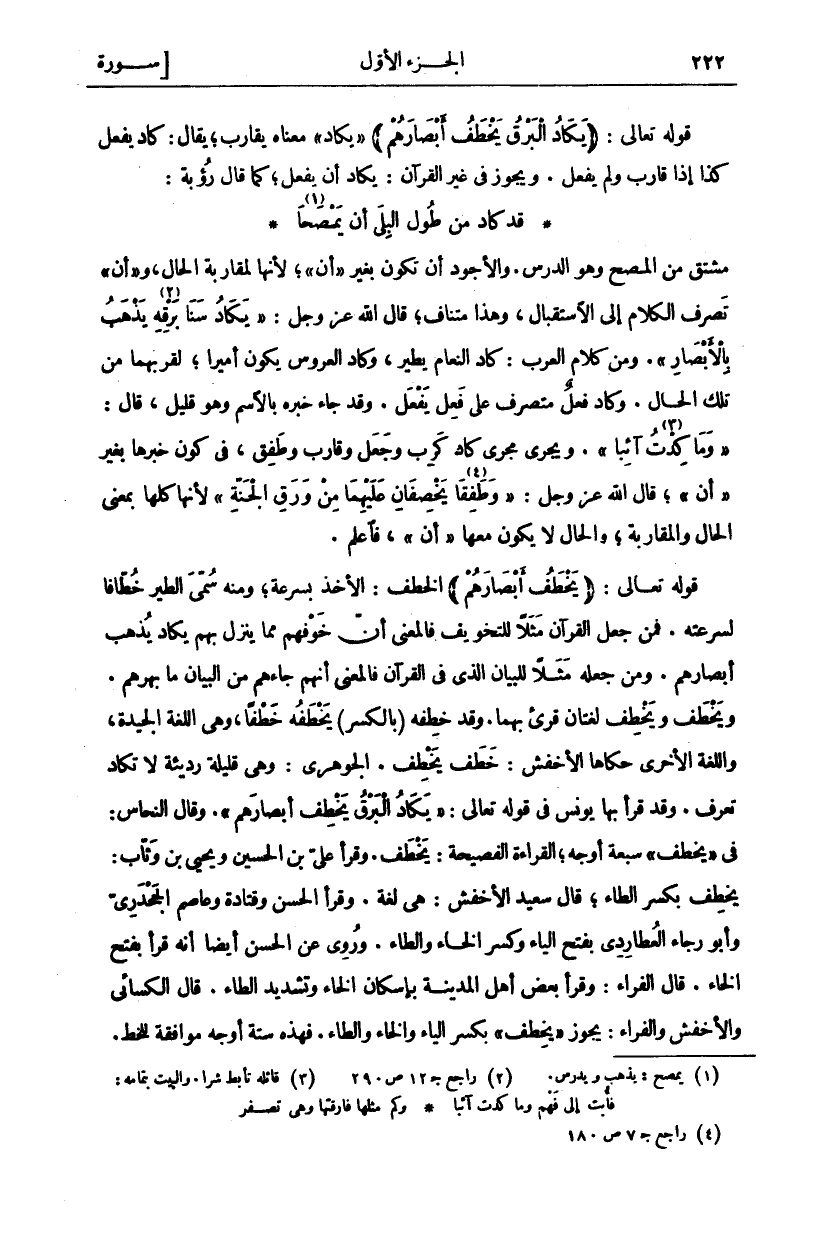 ٢٢٢ الجزء الأول [سورة
قوله تعالى : ﴿يَكَادُ الْبَرْقُ يَخْطَفُ أَبْصَارَهُمْ﴾ «يكاد» معناه يقارب؛ يقال: كاد يفعل
كذا إذا قارب ولم يفعل . ويجوز فى غير القرآن : يكاد أن يفعل؛ كما قال رُؤبة :
* قد كاد من طُول البِلَى أن يَمْصَحَا (١) *
مشتق من المصح وهو الدرس. والأجود أن تكون بغير «أن»؛ لأنها لمقاربة الحال، و«أن»
تَصرف الكلام إلى الاستقبال ، وهذا متناف؛ قال الله عز وجل : « يَكَادُ سَنَا بَرْقِهِ (٢) يَذْهَبُ
بِالْأَبْصَارِ ». ومن كلام العرب : كاد النعام يطير ، وكاد العروس يكون أميرا ؛ لقربهما من
تلك الحال . وكاد فعلٌ متصرف على فَعِل يَفْعَل . وقد جاء خبره بالاسم وهو قليل ، قال :
« وَمَا كِدْتُ (٣) آئبا » . ويجرى مجرى كاد كَرِب وجَعَل وقارب وطَفِق ، فى كون خبرها بغير
« أن » ؛ قال الله عز وجل : « وَطَفِقَا (٤) يَخْصِفَانِ عَلَيْهِمَا مِنْ وَرَقِ الْجَنَّةِ » لأنها كلها بمعنى
الحال والمقاربة ؛ والحال لا يكون معها « أن » ، فاعلم .
قوله تعالى : ﴿يَخْطَفُ أَبْصَارَهُمْ﴾ الخطف : الأخذ بسرعة؛ ومنه سُمِّىَ الطير خُطّافا
لسرعته . فمن جعل القرآن مَثَلًا للتخويف فالمعنى أنّ خَوْفهم مما ينزل بهم يكاد يُذهب
أبصارهم . ومن جعله مَثَلًا للبيان الذى فى القرآن فالمعنى أنهم جاءهم من البيان ما بهرهم .
ويَخْطَف ويَخْطِف لغتان قرئ بهما. وقد خطِفه (بالكسر) يَخْطَفُه خَطْفًا، وهى اللغة الجيدة،
واللغة الأخرى حكاها الأخفش : خَطَف يَخْطِف . الجوهرى : وهى قليلة رديئة لا تكاد
تعرف . وقد قرأ بها يونس فى قوله تعالى : « يَكَادُ الْبَرْقُ يَخْطِف أبصارَهم ». وقال النحاس:
فى «يخطف» سبعة أوجه؛ القراءة الفصيحة : يَخْطَف. وقرأ علىّ بن الحسين ويحيى بن وَثّاب:
يخطِف بكسر الطاء ؛ قال سعيد الأخفش : هى لغة . وقرأ الحسن وقتادة وعاصم الجَحْدَرِىّ
وأبو رجاء العُطاردِى بفتح الياء وكسر الخاء والطاء . ورُوى عن الحسن أيضا أنه قرأ بفتح
الخاء . قال الفراء : وقرأ بعض أهل المدينة بإسكان الخاء وتشديد الطاء . قال الكسائى
والأخفش والفراء : يجوز «يِخِطِف» بكسر الياء والخاء والطاء. فهذه ستة أوجه موافقة للخط.
(١) يمصح : يذهب ويدرس. (٢) راجع ج ١٢ ص ٢٩٠ (٣) قائله تأبط شرا. والبيت بتمامه :
فأُبت إلى فَهْم وما كدت آئبا * وكم مثلها فارقتها وهى تصفر
(٤) راجع ج ٧ ص ١٨٠